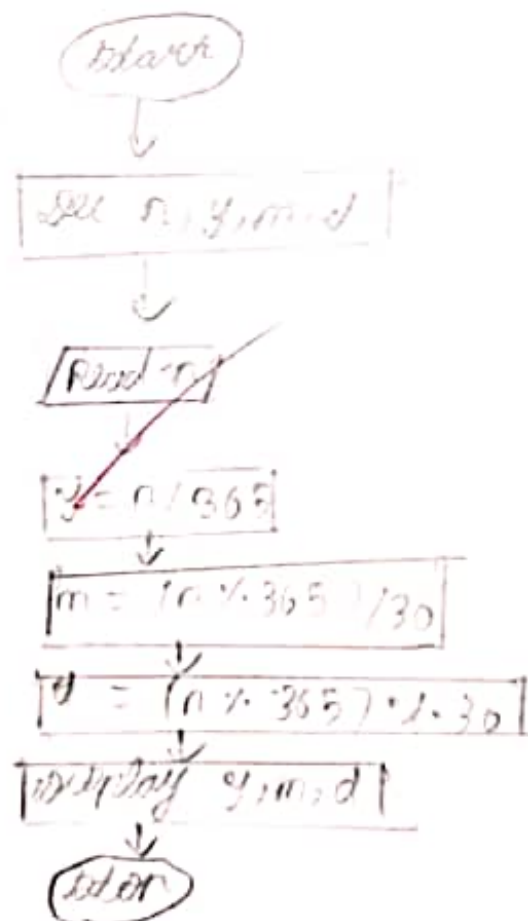 Start
Dec n, y, m, d
Read n
y = n / 365
m = (n % 365) / 30
= (n % 365) % 30
Display y, m, d
Stop